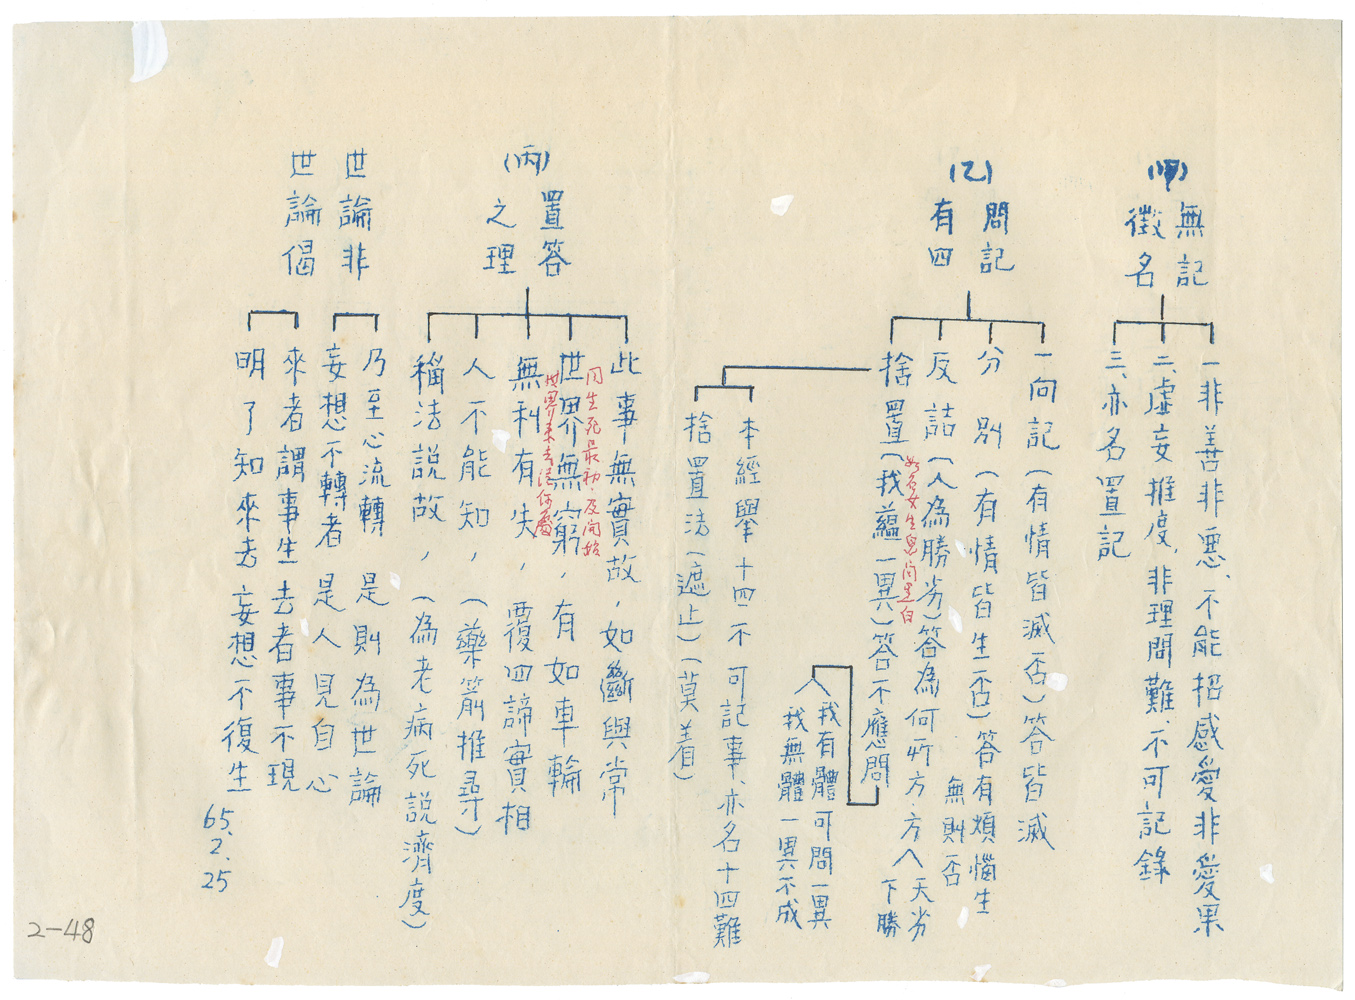 (甲)
無記
徵名
一非善非惡、不能招感愛非愛果
二、虛妄推度、非理問難、不可記錄
三、亦名置記
(乙)
問記
有四
一向記(有情皆滅否)答皆滅
分別(有情皆生否)答有煩惱生
無則否
反詰(人為勝劣)答為何所方.方
天劣
下勝
捨置(我蘊一異)答不應問
如石女生兒問黑白
我有體可問一異
我無體一異不成
本經舉十四不可記事、亦名十四難
捨置法(遮止)(莫着)
(丙)
置答
之理
此事無實故,如斷與常
問生死最初及開始
世界無窮,有如車輪
世界未去從何處
無利有失,覆四諦實相
人不能知,(藥箭推尋)
稱法説故,(為老病死説濟度)
世論非
世論偈
乃至心流轉 是則為世論
妄想不轉者 是人見自心
來者謂事生 去者事不現
明了知來去 妄想不復生
65.
2.
25
2-48